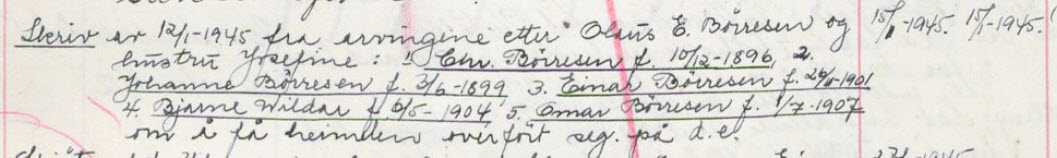 Skriv av 12/1-1945 fra arvingene etter Olaus E. Börresen og 15/1-1945. 15/1-1945.
hustru Josefine: 1. Chr. Börresen f. 10/12-1896, 2.
Johanne Börresen f. 3/6-1899 3. Einar Börresen f. 26/11-1901
4. Bjarne Wildar f. 6/5-1904, 5. Omar Börresen f. 1/7-1907
om å få heimelen overfört seg på d.e.